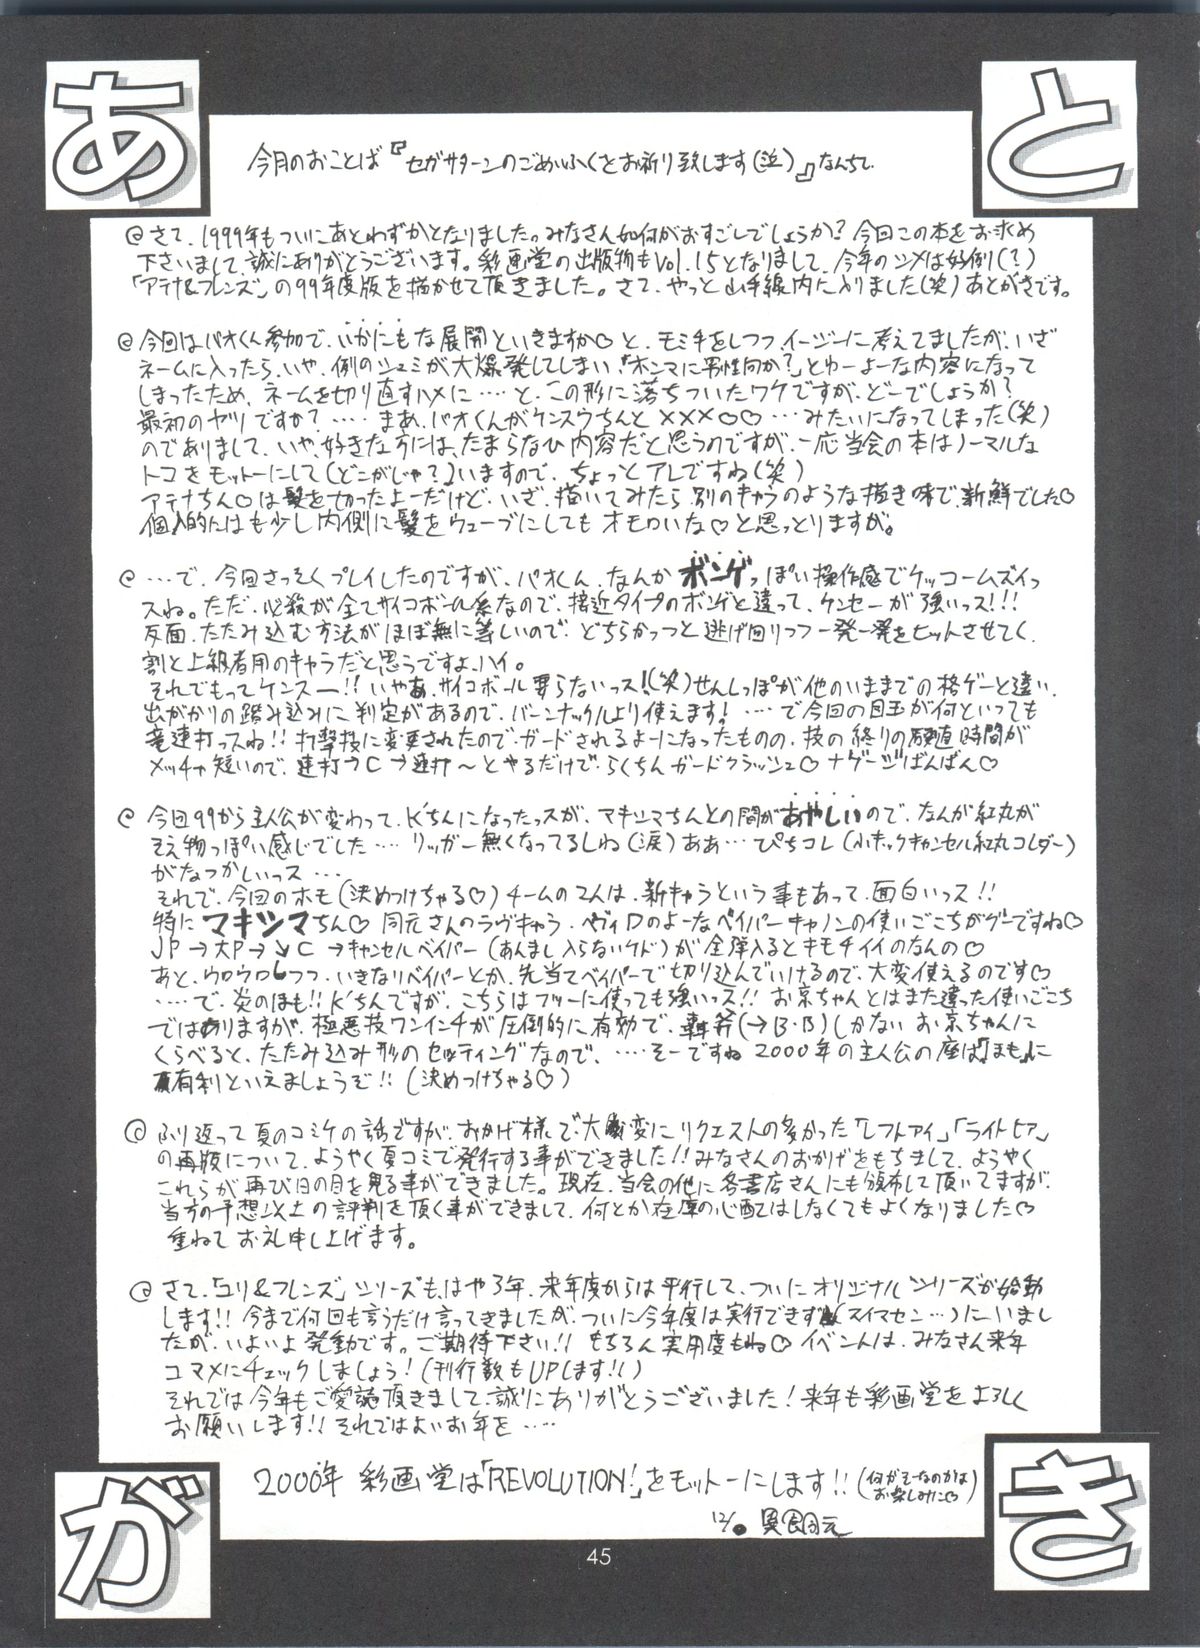 あと
今月のおことば『セガサターンのごめいふくをお祈り致します(泣)』なんちて
@ さて、1999年もついにあとわずかとなりました。みなさん如何がおすごしでしょうか?今回この本をお求め
下さいまして、誠にありがとうございます。彩画堂の出版物もVol.15となりまして、今年のシメは好例(?)
「アテナ&フレンズ」の99年度版を描かせて頂きました。さて、やっと山手線内に入りました(笑)あとがきです。
@ 今回はパオくん参加で、いかにもな展開といきますか♡と、モミ手をしつつ、イージーに考えてましたが、いざ
ネームに入ったら、いや、例のシュミが大爆発してしまい「ホンマに男性向か?」とゆーよーな内容になって
しまったため、ネームを切り直すハメに……と、この形に落ちついたワケですが、どーでしょうか?
最初のヤツですか?……まあ、パオくんがケンスウちんと×××○○……みたいになってしまった(笑)
のでありまして、いや、好きな方には、たまらなひ内容だと思うのですが、一応当会の本はノーマルな
トコをモットーにして(どこがじゃ?)いますので、ちょっとアレですね(笑)
アテナちん♡は髪を切ったよーだけど、いざ、描いてみたら別のキャラのような描き味で、新鮮でした♡
個人的にはも少し内側に髪をウェーブにしてもオモロいな♡と思っとりますが。
@ …で、今回さっそくプレイしたのですが、パオくん、なんかボンゲっぽい操作感でケッコームズイっ
スね。ただ、必殺が全てサイコボール系なので、接近タイプのボンゲと違って、ケンセーが強いっス!!!
反面、たたみ込む方法がほぼ無に等しいので、どちらかっつと逃げ回りつつ一発一発をヒットさせてく、
割と上級者用のキャラだと思うですよ、ハイ。
それでもってケンスー!!いやぁ、サイコボール要らないっス!(笑)せんしっぽが他のいままでの格ゲーと違い、
出がかりの踏み込みに判定があるので、バーンナックルより使えます!……で今回の目玉が何といっても
竜連打っスね!!打撃技に変更されたので、ガードされるよーになったものの、技の終りの硬直時間が
メッチャ短いので、連打→C→連打〜とやるだけで、らくちんガードクラッシュ♡ナゲージばんばん♡
@ 今回99から主人公が変わって、K'ちんになったっスが、マキシマちんとの間があやしいので、なんか紅丸が
そえ物っぽい感じでした……リッガー無くなってるしね(涙)ああ…ぴちコレ(小キックキャンセル紅丸コレダー)
がなつかしいっス…
それで、今回のホモ(決めつけちゃる♡)チームの2人は、新キャラという事もあって、面白いっス!!
特にマキシマちん♡同元さんのラヴキャラ、ヘヴィDのよーなベイパーキャノンの使いごこちがグーですね♡
JP→大P→↘C→キャンセルベイパー(あんまし入らないケド)が全弾入るとキモチイイのなんの♡
あと、ウロウロしつつ、いきなりベイパーとか、先当てベイパーで切り込んでいけるので、大変使えるのです♡
……で、炎のほも!!K'ちんですが、こちらはフツーに使っても強いっス!!お京ちゃんとはまた違った使いごこち
ではありますが、極悪技ワンインチが圧倒的に有効で、轟斧(→B・B)しかないお京ちゃんに
くらべると、たたみ込み形のセッティングなので、……そーですね2000年の主人公の座は「ほも」に
有利といえましょうぞ!!(決めつけちゃる♡)
@ ふり返って夏のコミケの話ですが、おかげ様で、大変にリクエストの多かった「レフトアイ」「ライトヒア」
の再版について、ようやく夏コミで発行する事ができました!!みなさんのおかげをもちまして、ようやく
これらが再び日の目を見る事ができました。現在、当会の他に各書店さんにも頒布して頂いてますが、
当方の予想以上の評判を頂く事ができまして、何とか在庫の心配はしなくてもよくなりました♡
重ねてお礼申し上げます。
@ さて、「ユリ&フレンズ」シリーズも、はや3年、来年度からは平行して、ついにオリジナルシリーズが始動
します!!今まで何回も言うだけ言ってきましたが、ついに今年度は実行できず(スイマセン…)にいまし
たが、いよいよ発動です。ご期待下さい!!もちろん実用度もね♡イベントは、みなさん来年
コマメにチェックしましょう!(刊行数もUPします!!)
それでは今年もご愛読頂きまして、誠にありがとうございました!来年も彩画堂をよろしく
お願いします!!それではよいお年を……
2000年 彩画堂は「REVOLUTION!」をモットーにします!!(何がそーなのかは
お楽しみに♡)
12/
がき
45